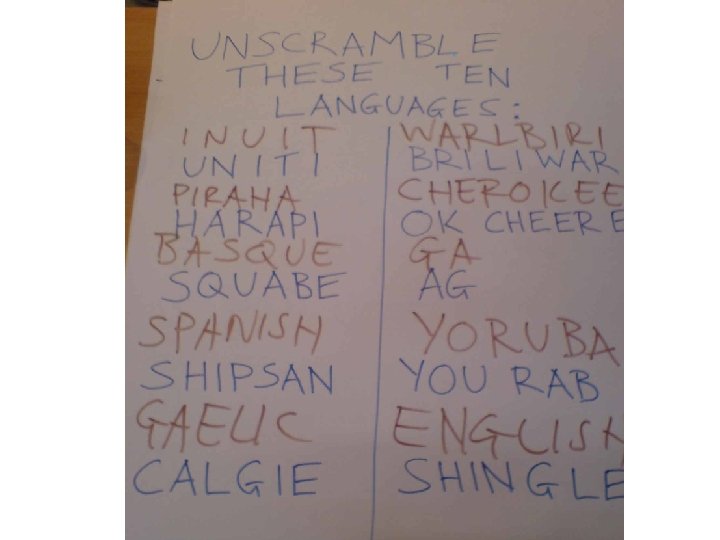 UNSCRAMBLE
THESE TEN
LANGUAGES:
INUIT
UNITI
PIRAHA
HARAPI
BASQUE
SQUABE
SPANISH
SHIPSAN
GAELIC
CALGIE
WARLBIRI
BRILIWAR
CHEROKEE
OK CHEERE
GA
AG
YORUBA
YOU RAB
ENGLISH
SHINGLE